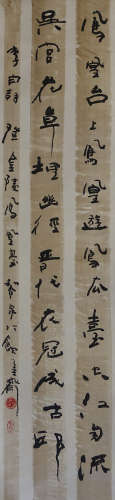 鳳凰台上鳳凰遊鳳去臺空江自流
吳宮花草埋幽徑晉代衣冠成古邱
李白詩登金陵鳳凰臺